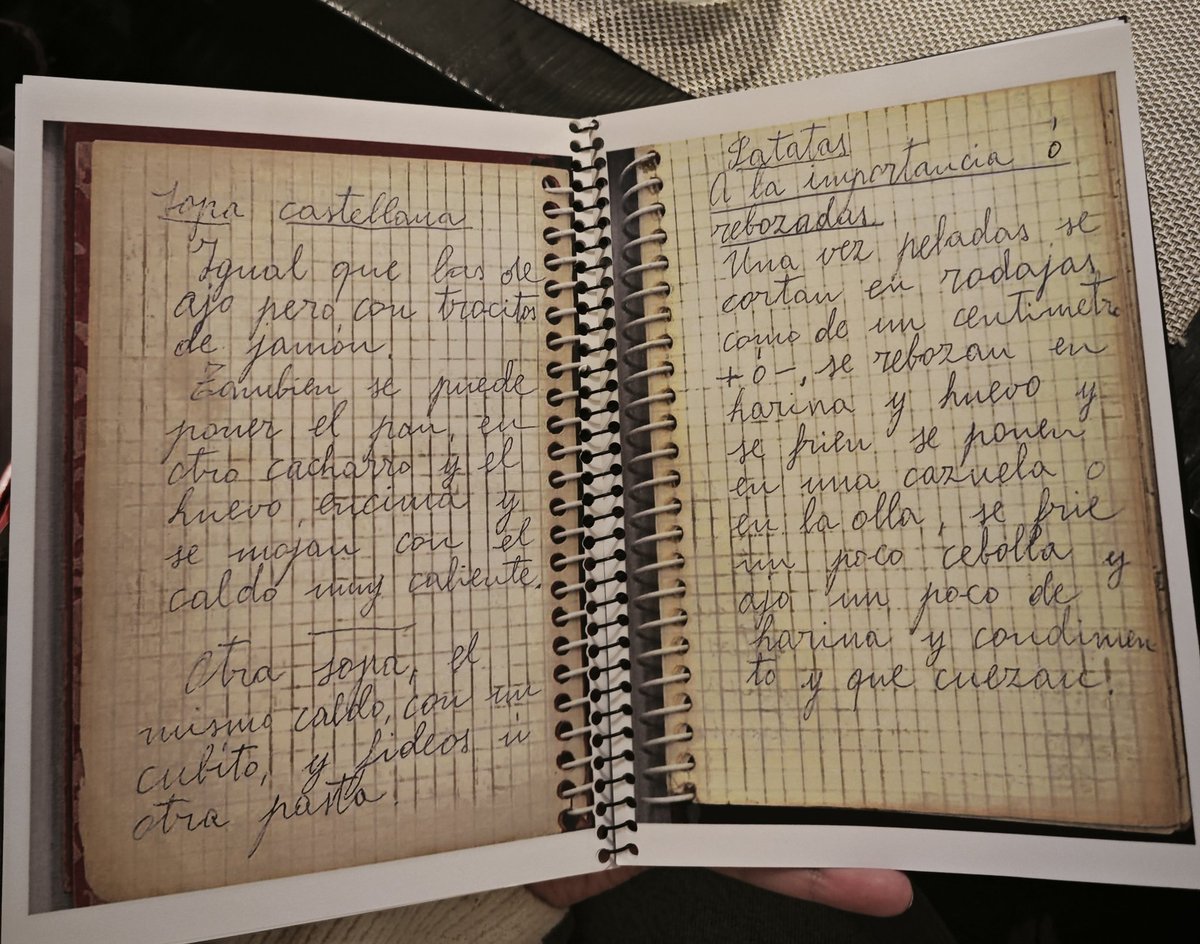 Sopa castellana
Igual que las de
ajo pero, con trocitos
de jamón.
Tambien se puede
poner el pan, en
otro cacharro y el
huevo, encima y
se mojan con el
caldo muy caliente.
Otra sopa, el
mismo caldo, con un
cubito, y fideos ú
otra pasta.
Patatas
A la importancia ó
rebozadas.
Una vez peladas se
cortan en rodajas
como de un centimetro
+ ó -, se rebozan en
harina y huevo y
se frien se ponen
en una cazuela o
en la olla, se frie
un poco cebolla y
ajo un poco de
harina y condimen
to y que cuezan.